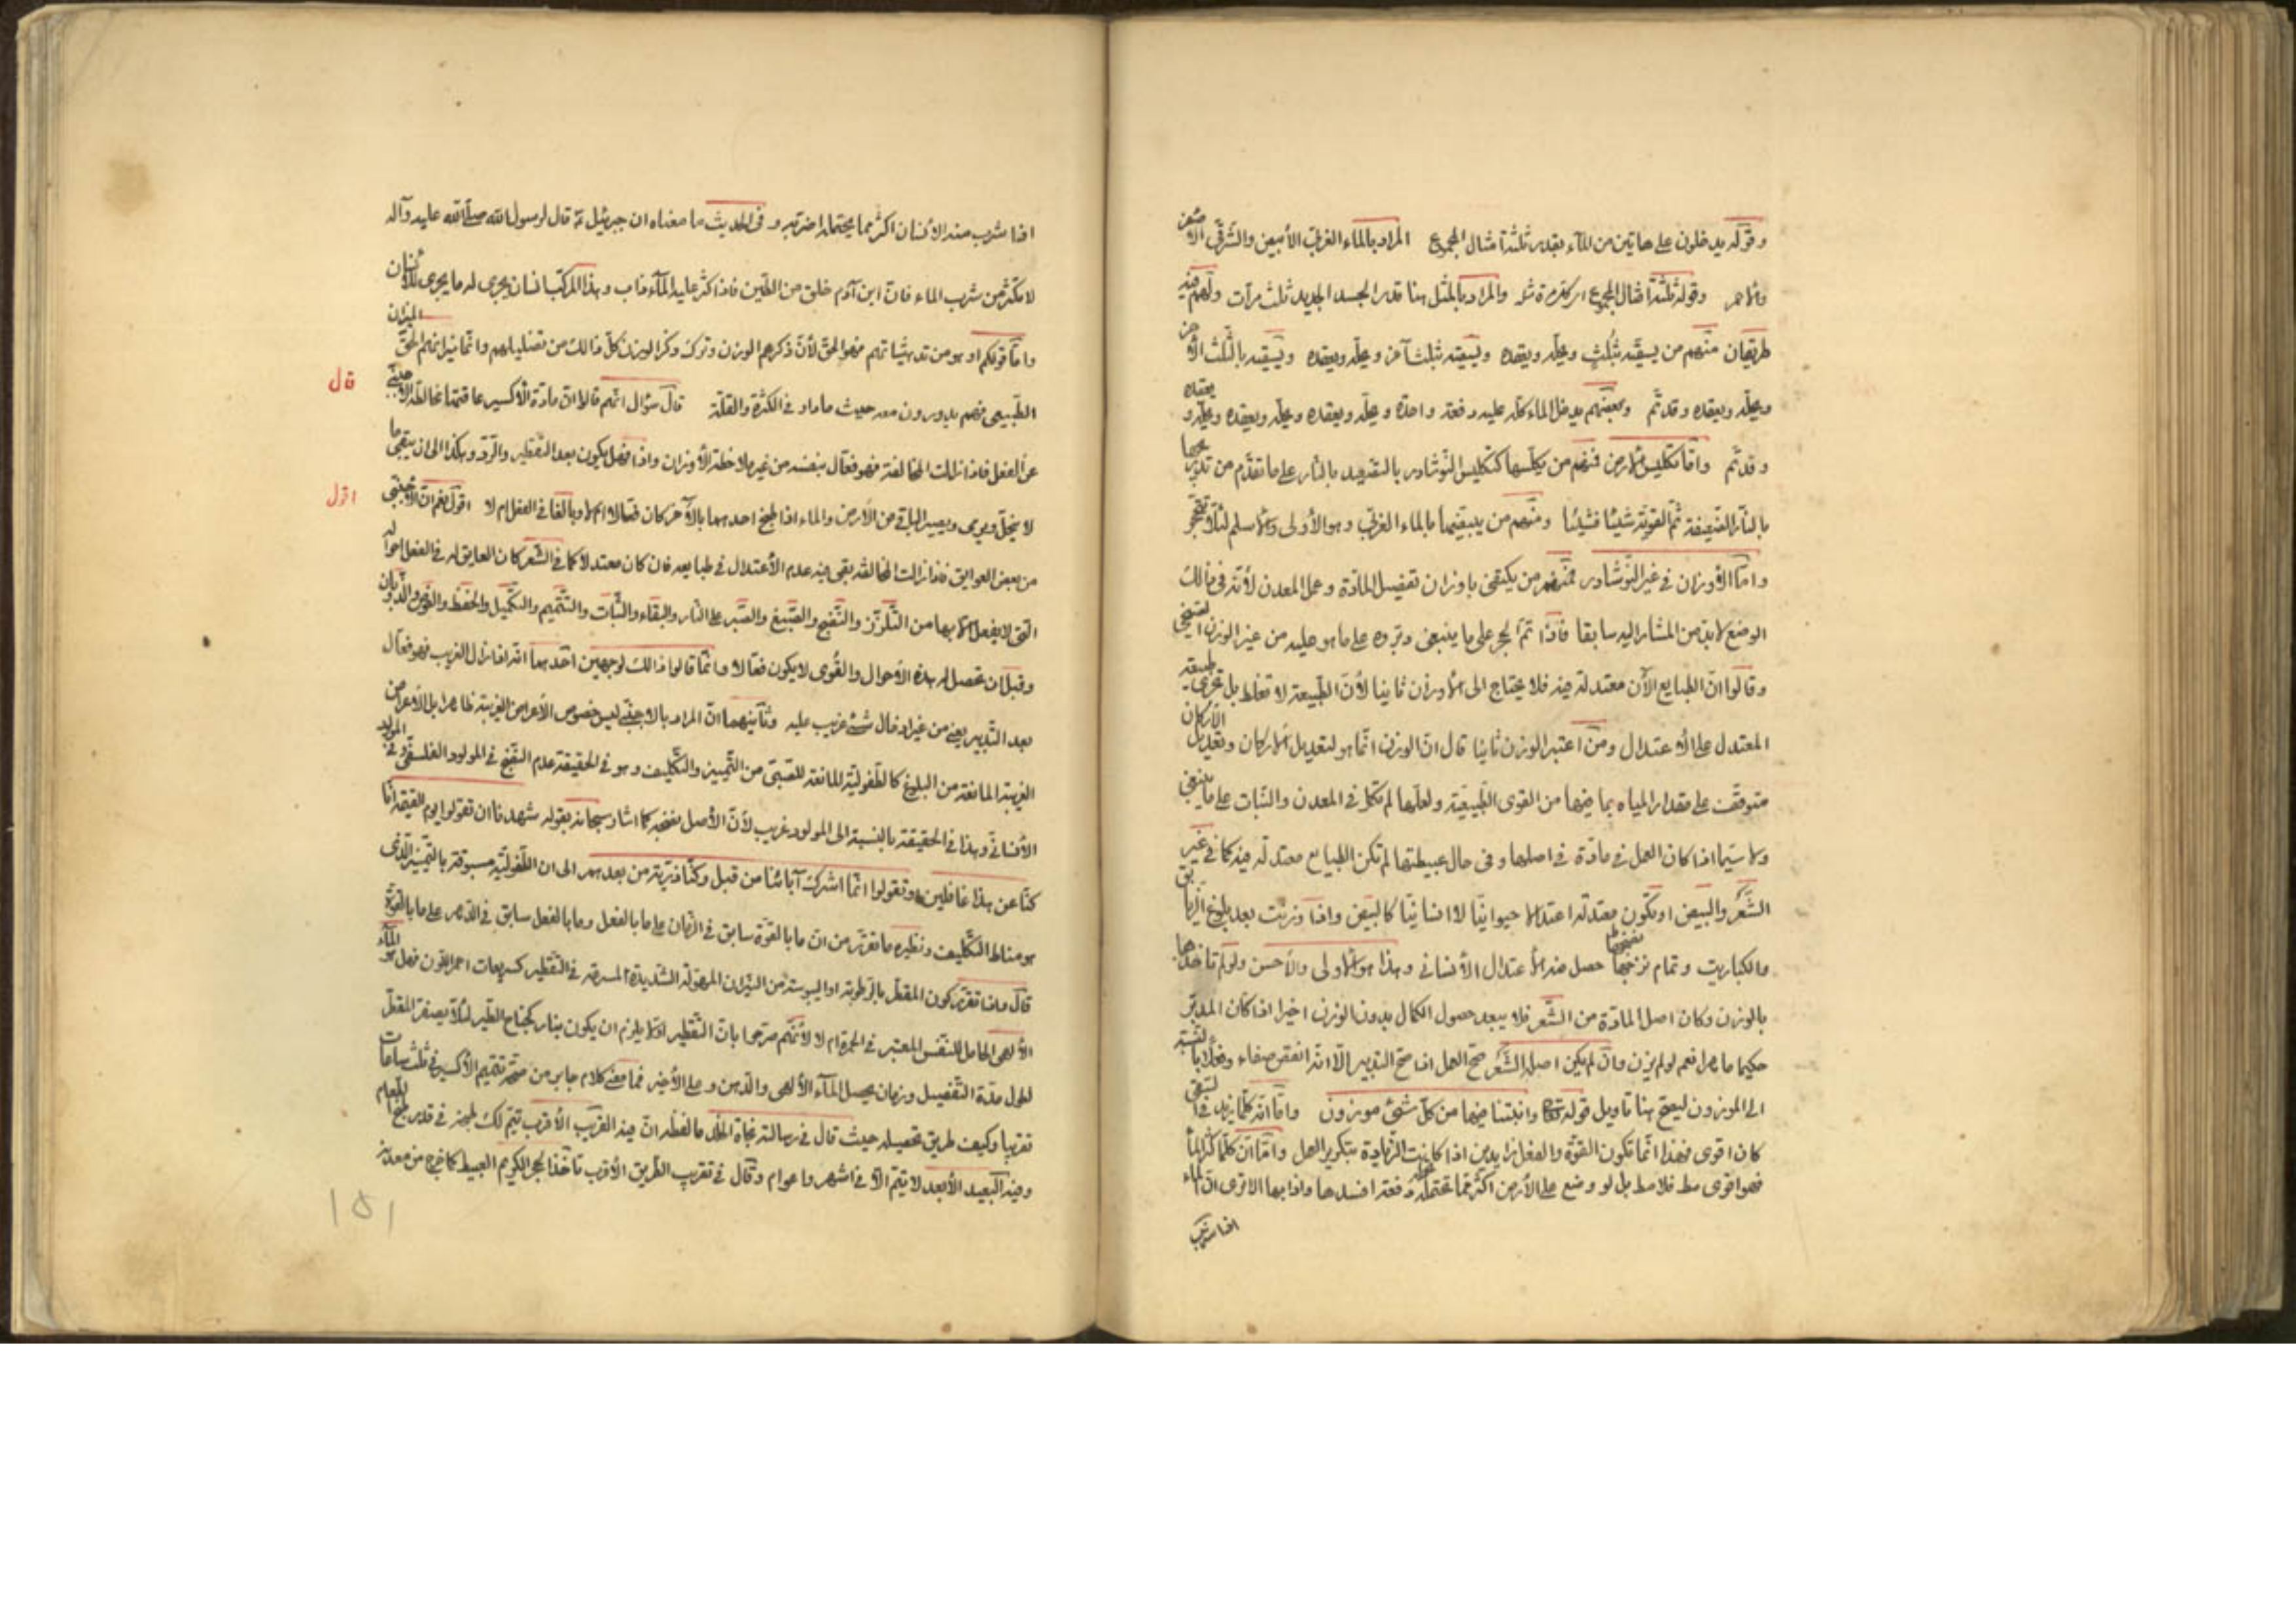 وقوله يدخلون على هاتين من الماء بقدر ثلثة امثال المجموع المراد بالماء الغربى الأبيض والشرقى الأبيض
والأحمر وقوله ثلثة امثال المجموع اى كل مرة مثله والمراد بالمثل هنا قدر الجسد الجديد ثلث مرات ولهم فيه
طريقان منهم من يسقيه بثلث ويحله ويعقده ويسقيه بثلث آخر ويحله ويعقده ويسقيه بالثلث الآخر
ويحله ويعقده وقد تم وبعضهم يدخل الماء كله عليه دفعة واحدة ويحله ويعقده ويحله ويعقده ويحله ويعقده
وقد تم واما تكليس الأرض فمنهم من يكلسها كتكليس النوشادر بالتصعيد بالنار على ما تقدم من تدريجها
بالنار الضعيفة ثم القوية شيئا فشيئا ومنهم من يبيضها بالماء الغربى وهو الأولى والأسلم لئلا تتحجر
واما الأوزان فى غير النوشادر فمنهم من يكتفى باوزان تفصيل المادة وعمل المعدن لأنه فى ذلك
الوضع لا بد من المشار اليه سابقا فاذا تم الحجر على ما ينبغى دبروه على ما هو عليه من غير الوزن
وقالوا ان الطبايع الآن معتدلة فيه فلا يحتاج الى الأوزان ثانيا لأن الطبيعة لا تغلط بل تجرى
المعتدل على الأعتدال ومن اعتبر الوزن ثانيا قال ان الوزن انما هو لتعديل الأركان وتعديل الأركان
متوقف على مقدار المياه بما فيها من القوى الطبيعية ولعلها لم تكمل فى المعدن والنبات على ما ينبغى
ولا سيما اذا كان العمل فى مادة فى اصلها وفى حال عبيطتها لم تكن الطبايع معتدلة فيه كما فى غير
الشعر والبيض او تكون معتدلة اعتدالا حيوانيا لا انسانيا كالبيض واذا وزنت بعد بلوغ الزيابق
والكباريت وتمام نضجها حصل منه الأعتدال الأنسانى وهذا هو الأولى والأحسن ولو لم تأخذها
بالوزن وكان اصل المادة من الشعر فلا يبعد حصول الكمال بدون الوزن اخيرا اذا كان المدبر
حكيما ماهرا فهم لو لم يزن وان لم يكن اصله الشعر صح العمل اذا صح التدبير الا انه انقص صفاء وفعلا بالنسبة
الى الموزون ليصح هنا تأويل قوله تعالى وانبتنا فيها من كل شئ موزون واما انه كلما يزيد فى
كان اقوى فهذا انما تكون القوة والفعل زايدين اذا كانت الزيادة بتكرير العمل واما ان كلما كثر الماء
فهو اقوى مط فلا مط بل لو وضع على الأرض اكثر مما تحتمله دفعة افسدها واذابها الا ترى ان الماء
اذا شرب
اذا شرب منه الأنسان اكثر مما يحتمله اضر به وفى الحديث ما معناه ان جبرئيل ع قال لرسول الله صلى الله عليه وآله
لا تكثر من شرب الماء فان ابن آدم خلق من الطين فاذا كثر عليه الماء ذاب وهذا المركب انسان يجرى له ما يجرى للأنسان
واما قولكم او هو من تدهيشاتهم فهو الحق لأن ذكرهم الوزن وترك ذكر الوزن كل ذلك من تضليلهم وانما ميزانهم الحق الميزان
الطبيعى فهم يدورون معه حيث ما دار فى الكثرة والقلة قال سؤال انهم قالوا ان مادة الأكسير عاقتها مخالطة الأجنبى
عن الفعل فاذا زالت المخالفة فهو فعال بنفسه من غير ملاحظة الأوزان واذا فصل يكون بعد التقطير والرد وهكذا الى ان يبقى ما
لا ينحل ويرمى ويصير الباقى من الأرض والماء اذا طبخ احدهما بالآخر كان فعالا ام لا وبالغا فى الفعل ام لا اقول نعم ان الأجنبى
من بعض العوايق فاذا زالت المخالفة يبقى فيه عدم الأعتدال فى طبايعه فان كان معتدلا كما فى الشعر كان العايق له فى الفعل احواله
التى لا يفعل الا بها من التلزز والنضج والصبغ والصبر على النار والبقاء والثبات والتتميم والتكميل والحفظ والغوص والذوبان
وقبل ان تحصل له هذه الأحوال والقوى لا يكون فعالا وانما قالوا ذلك لوجهين احدهما انه اذا زال الغريب فهو فعال
بعد التدبير يعنى من غير ادخال شئ غريب عليه وثانيهما ان المراد بالأجنبى ليس خصوص الأعراض الغريبة ظاهرا بل الأعراض
الغريبة المانعة من البلوغ كالطفولية المانعة للصبى من التمييز والتكليف وهو فى الحقيقة عدم النضج فى المولود الفلسفى وفى المولود
الأنسانى وهذا فى الحقيقة بالنسبة الى المولود غريب لأن الأصل نضجه كما اشار سبحانه بقوله شهدنا ان تقولوا يوم القيمة انا
كنا عن هذا غافلين او تقولوا انما اشرك آبائنا من قبل وكنا ذرية من بعدهم الى ان الطفولية مسبوقة بالتمييز الذى
هو مناط التكليف ونظيره ما تقرر من ان ما بالقوة سابق فى الزمان على ما بالفعل وما بالفعل سابق فى الدهر على ما بالقوة
قال واذا تقرر كون المقطر بالرطوبة او اليبوسة من النيران المهولة الشديدة المسرفة فى التقطير كسريعات احمر اللون فهل هو الماء
الألهى الحامل للنفس المعتبر فى الحمرة ام لا لأنهم صرحوا بان التقطير اولا يلزم ان يكون بنار كجناح الطير لئلا يصفر المقطر
لطول مدة التفصيل وزمان يحصل الماء الألهى والدهن وعلى الأخير فما معنى كلام جابر من صحة تتميم الأكسير فى ثلث ساعات
تقريبا وكيف طريق تحصيله حيث قال فى رسالة نجاة الخلد ما لفظه ان فيه القريب الأقرب يتم لك طبخه فى قدر طبخ الطعام
وفيه البعيد الأبعد لا يتم الا فى اشهر واعوام وقال فى تقريب الطريق الأقرب تأخذ الحجر الكريم العبيط كما خرج من معدنه
قال
اقول
١٥١